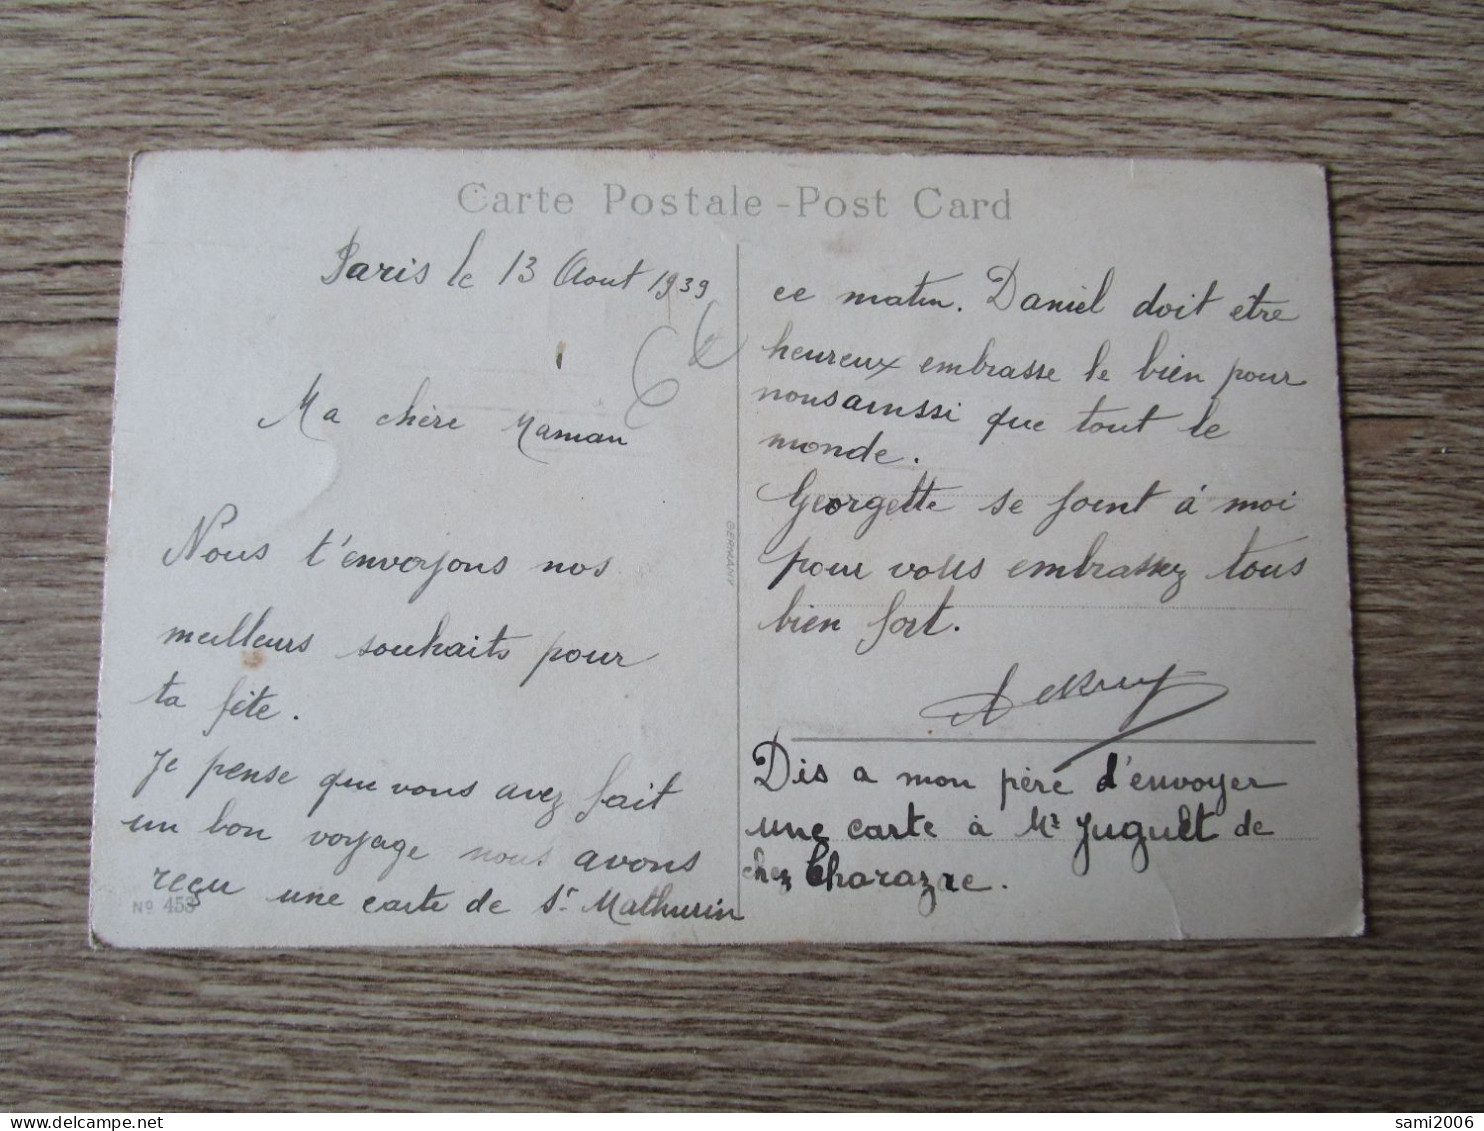 Carte Postale - Post Card
Paris le 13 Aout 1939
Ma chère Maman
Nous t'envoyons nos
meilleurs souhaits pour
ta fête.
Je pense que vous avez fait
un bon voyage nous avons
reçu une carte de St Mathurin
No 453
GERMANY
ce matin. Daniel doit etre
heureux embrasse le bien pour
nous ainssi que tout le
monde.
Georgette se joint à moi
pour vous embrassez tous
bien fort.
Dis a mon père d'envoyer
une carte à Mr Juguet de
chez Charazre.
sami2006
delcampe.net